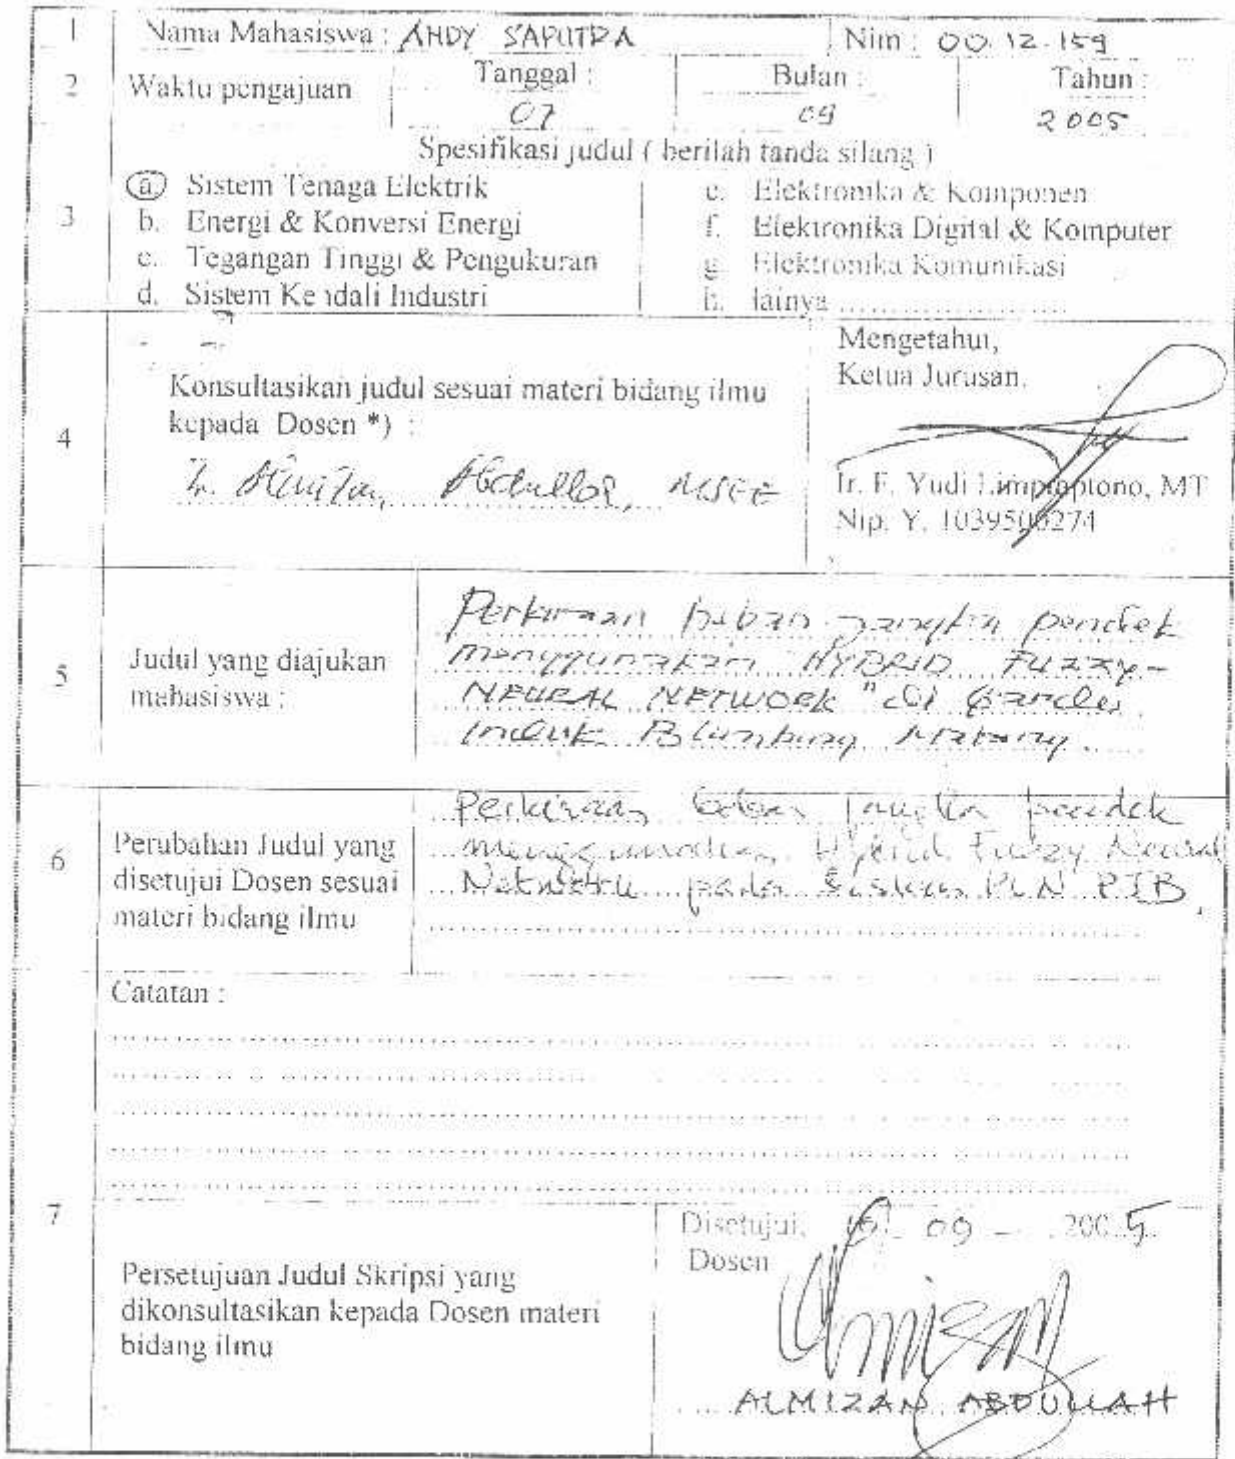 1 Nama Mahasiswa : ANDY SAPUTRA Nim : 00.12.159
2 Waktu pengajuan Tanggal : Bulan : Tahun :
07 09 2005
Spesifikasi judul ( berilah tanda silang )
3
a. Sistem Tenaga Elektrik
b. Energi & Konversi Energi
c. Tegangan Tinggi & Pengukuran
d. Sistem Kendali Industri
e. Elektronika & Komponen
f. Elektronika Digital & Komputer
g. Elektronika Komunikasi
h. lainya ......................
4
Konsultasikan judul sesuai materi bidang ilmu
kepada Dosen *) :
Ir. Almizan Abdullah, MSEE
Mengetahui,
Ketua Jurusan.
Ir. F. Yudi Limpraptono, MT
Nip. Y. 1039500274
5
Judul yang diajukan
mahasiswa :
Perkiraan beban jangka pendek
menggunakan HYBRID FUZZY-
NEURAL NETWORK" di Gardu
Induk Blimbing Malang.
6
Perubahan Judul yang
disetujui Dosen sesuai
materi bidang ilmu
Perkiraan beban jangka pendek
menggunakan Hybrid Fuzzy Neural
Network pada Sistem PLN PJB
Catatan :
7
Persetujuan Judul Skripsi yang
dikonsultasikan kepada Dosen materi
bidang ilmu
Disetujui, 09 - 2005
Dosen
Almizan
ALMIZAN ABDULLAH